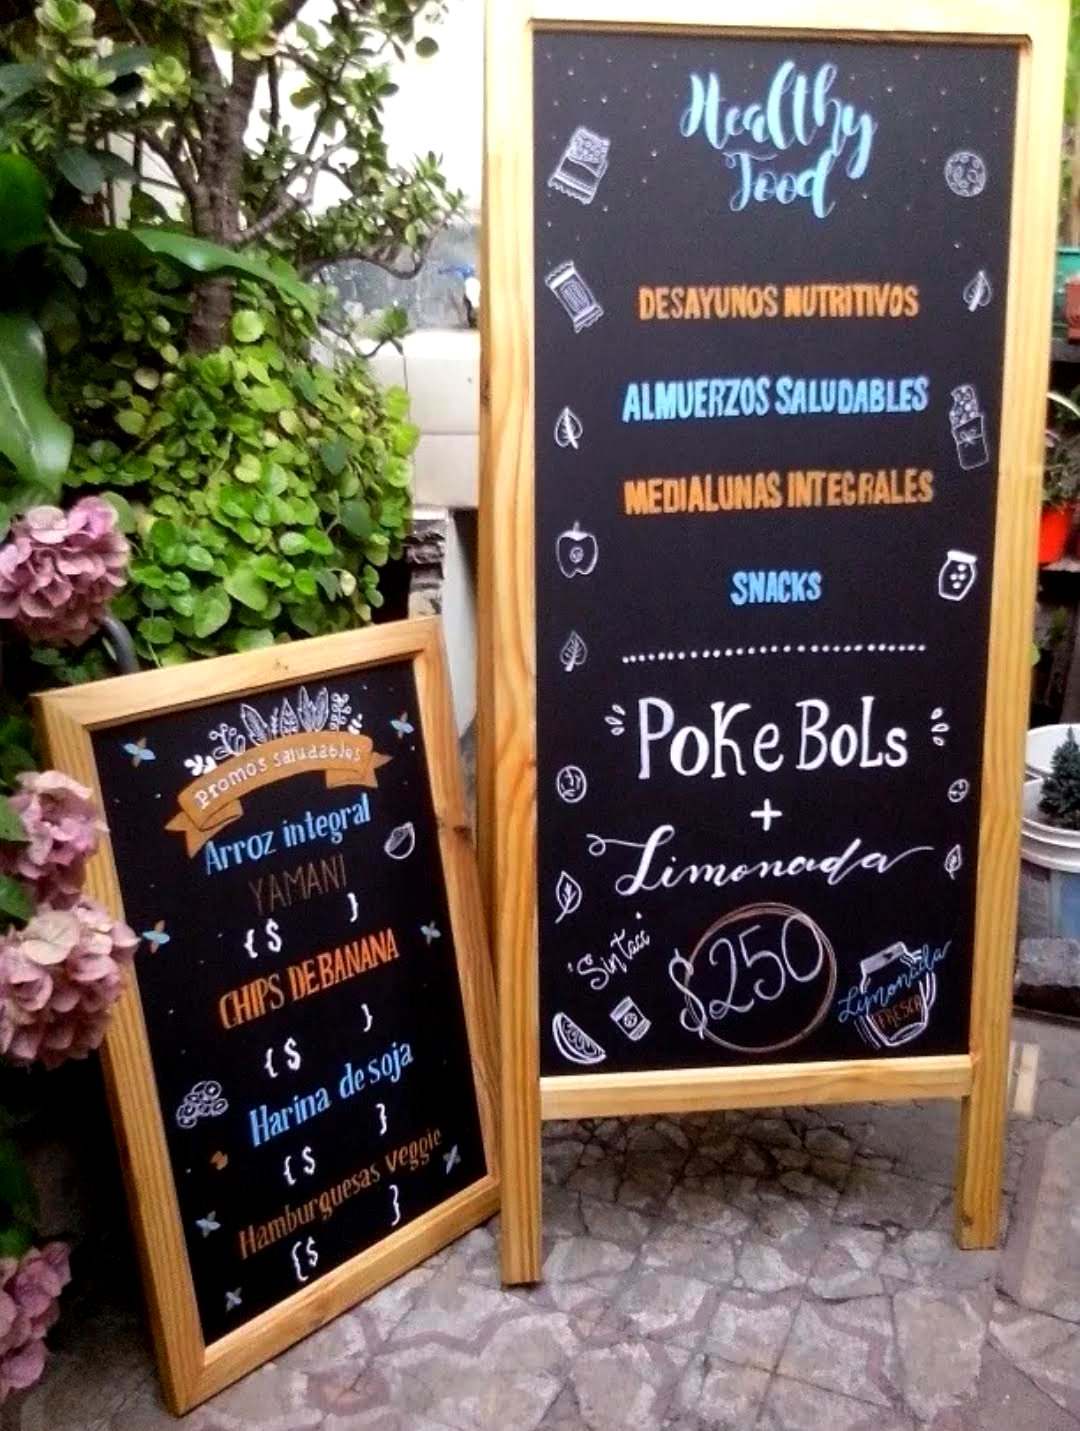 Healthy
Food
DESAYUNOS NUTRITIVOS
ALMUERZOS SALUDABLES
MEDIALUNAS INTEGRALES
SNACKS
POKe BOLs
+
Limonada
Sin tacc
$250
Limonada
FRESCA
Promos saludables
Arroz integral
YAMANI
{$ }
CHIPS DE BANANA
{$ }
Harina de soja
{$ }
Hamburguesas veggie
{$ }